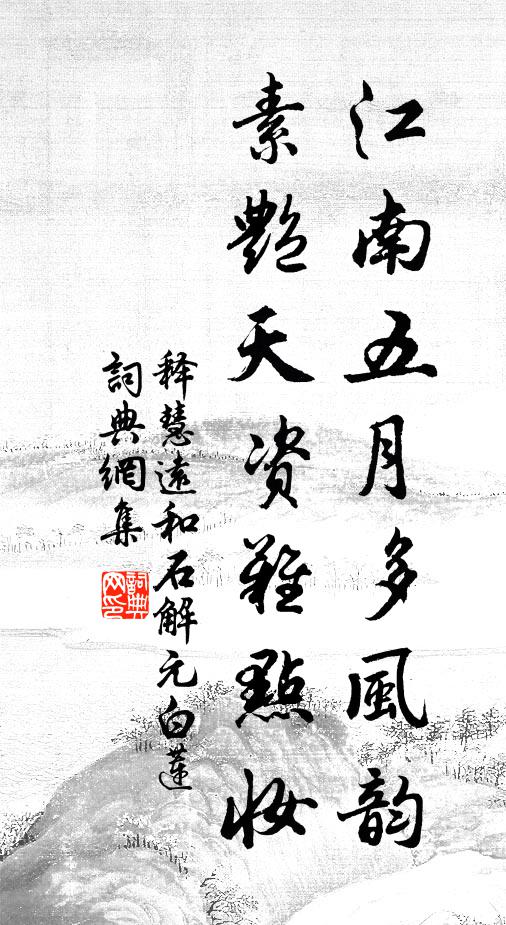 江南五月多風韵
素艷天資難點妝
釋慧遠和石解元白蓮
詞典網集
詞典網印